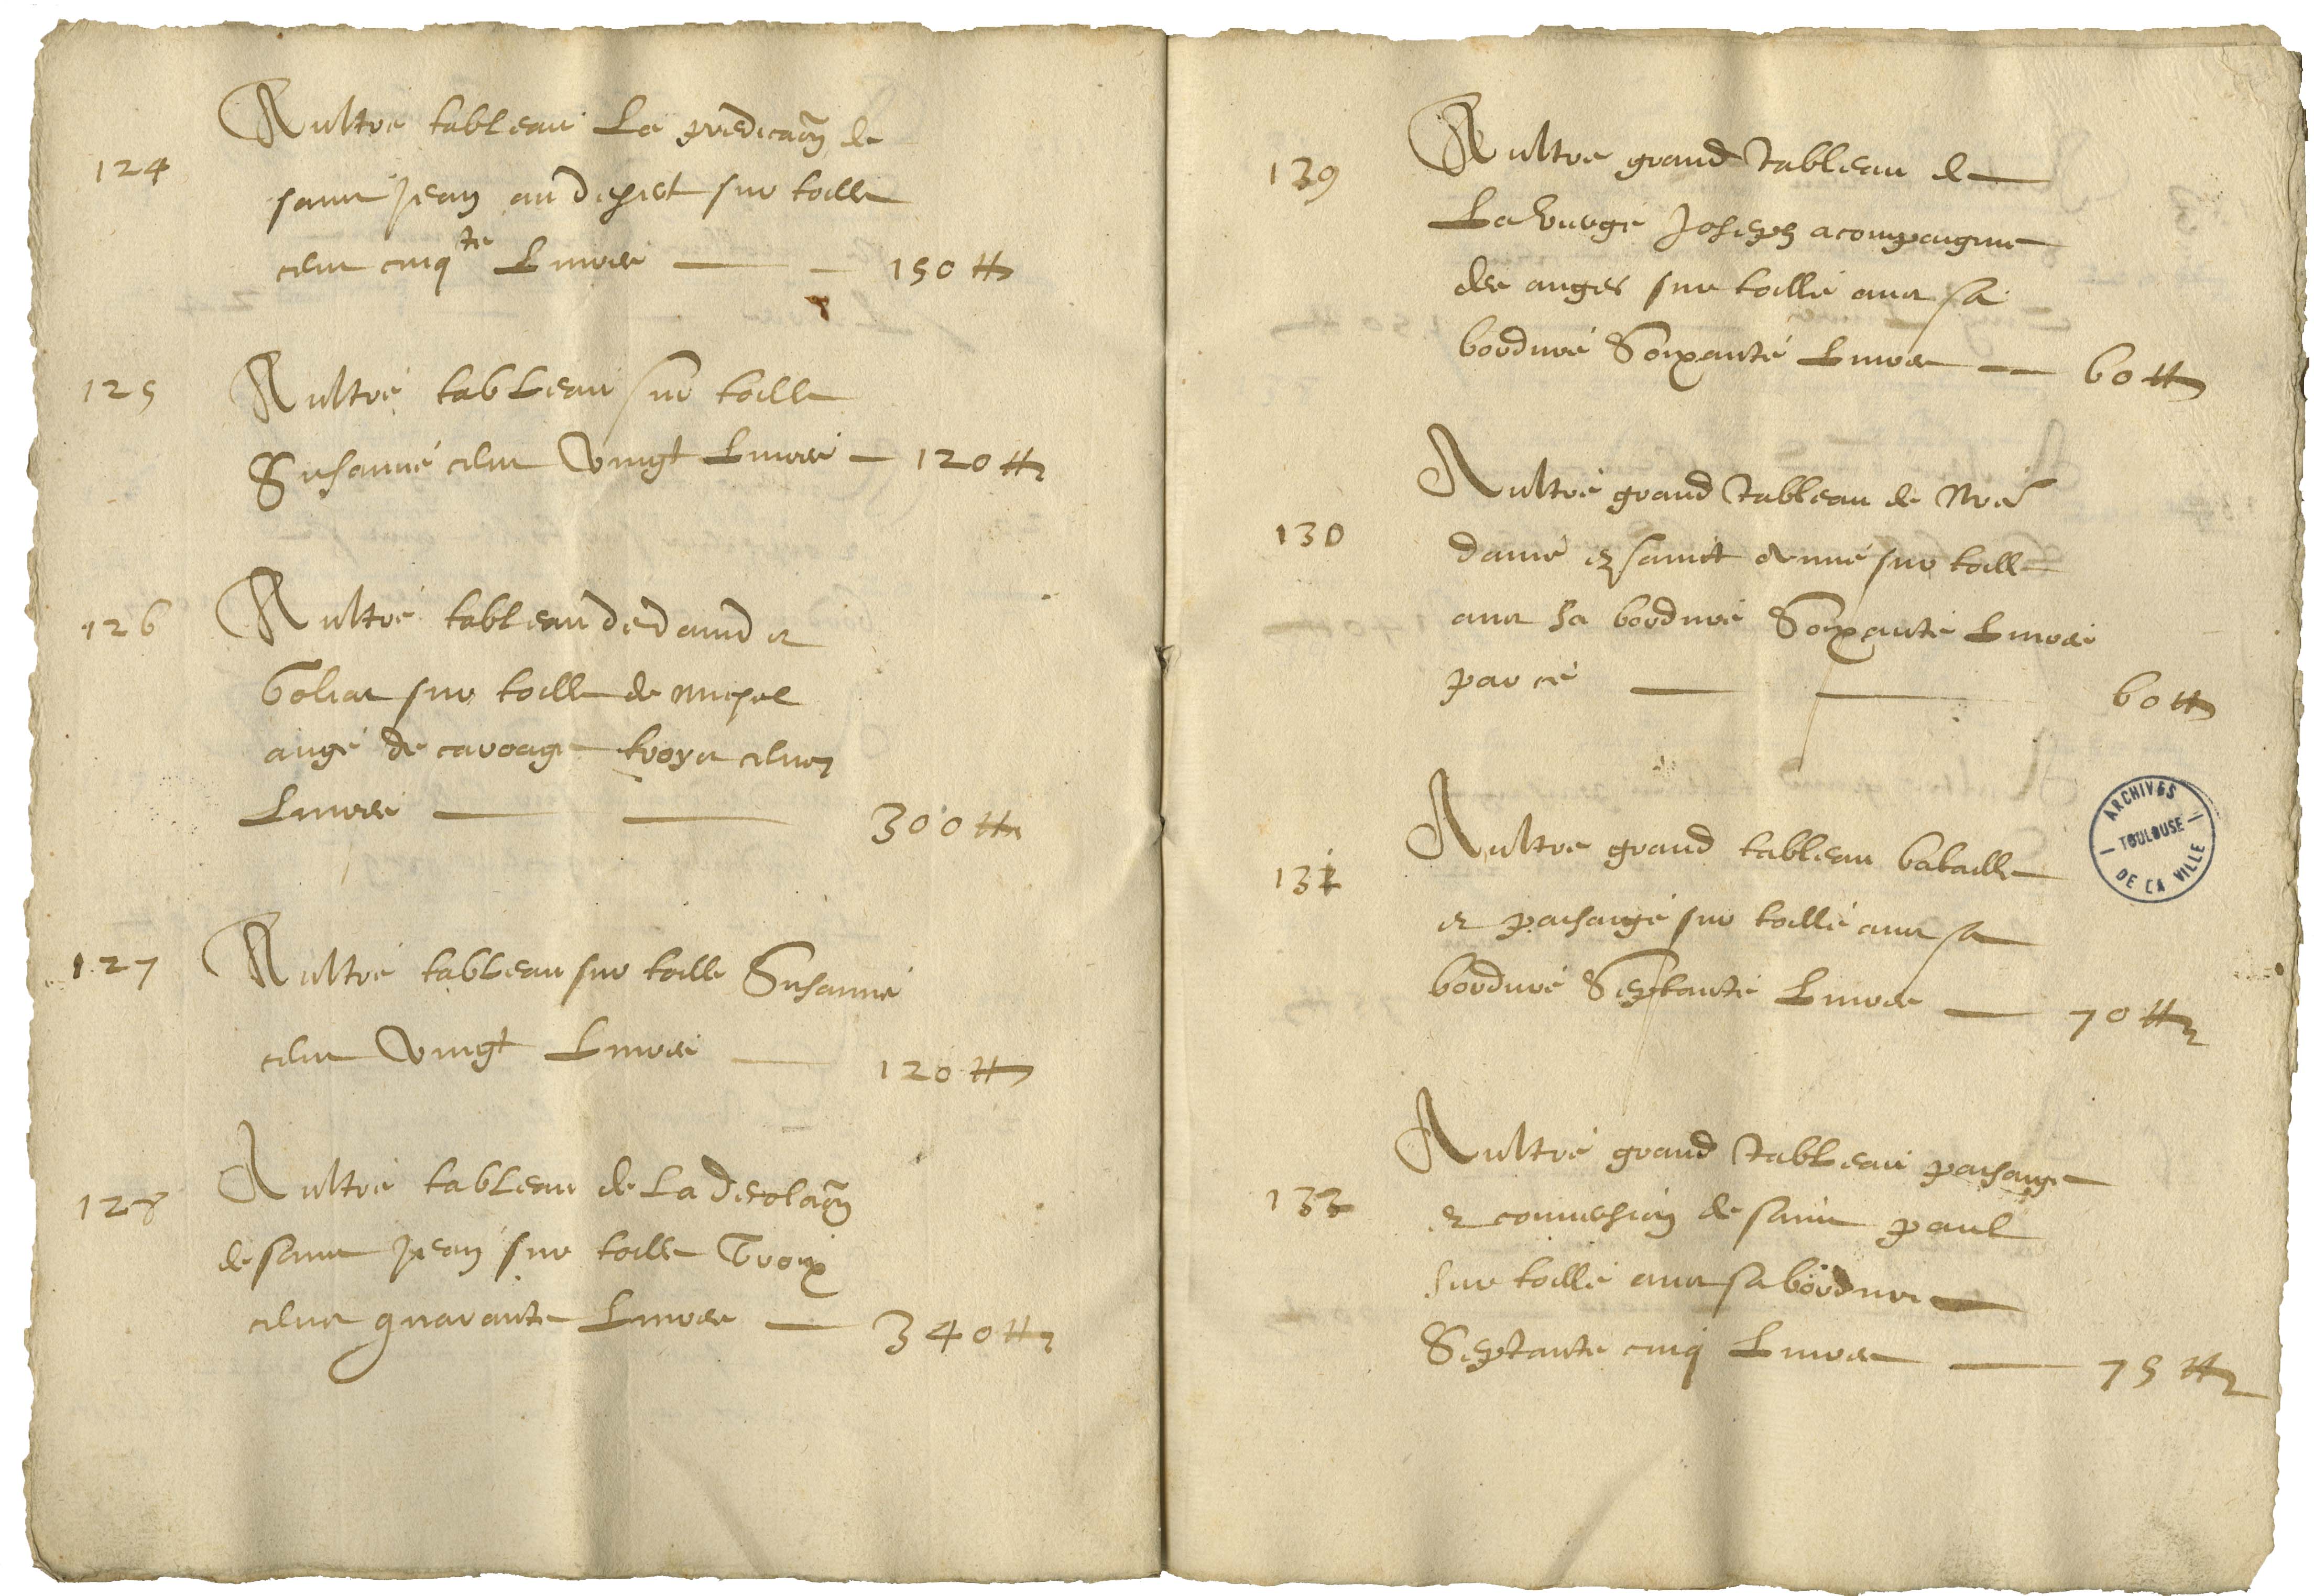 124
Aultre tableau La predicaōn de
sainct Jean au desert sur toille
cent cinq te Livres — — 150 ₶
125
Aultre tableau sur toille
Susanne cent vingt Livres — 120 ₶
126
Aultre tableau de david et
Goliat sur toille de michel
ange de caravage troys cens
Livres — — 300 ₶
127
Aultre tableau sur toille Susanne
cent vingt Livres — 120 ₶
128
Aultre tableau de La decolaōn
de sainct Jean sur toille Troix
cent quarante Livres — 340 ₶
129
Aultre grand tableau de
La vierge Joseph acompaigne
des anges sur toille avec sa
bordure Soixante Livres — 60 ₶
130
Aultre grand tableau de Nre
dame et sainct Anne sur toille
avec sa bordure Soixante Livres
par ce — — 60 ₶
131
Aultre grand tableau bataille
et paisange sur toille avec sa
bordure Septante Livres — 70 ₶
132
Aultre grand tableau paisange
et conversion de sainct paul
sur toille avec sa bordure
Septante cinq Livres — 75 ₶
ARCHIVES
— TOULOUSE —
DE LA VILLE